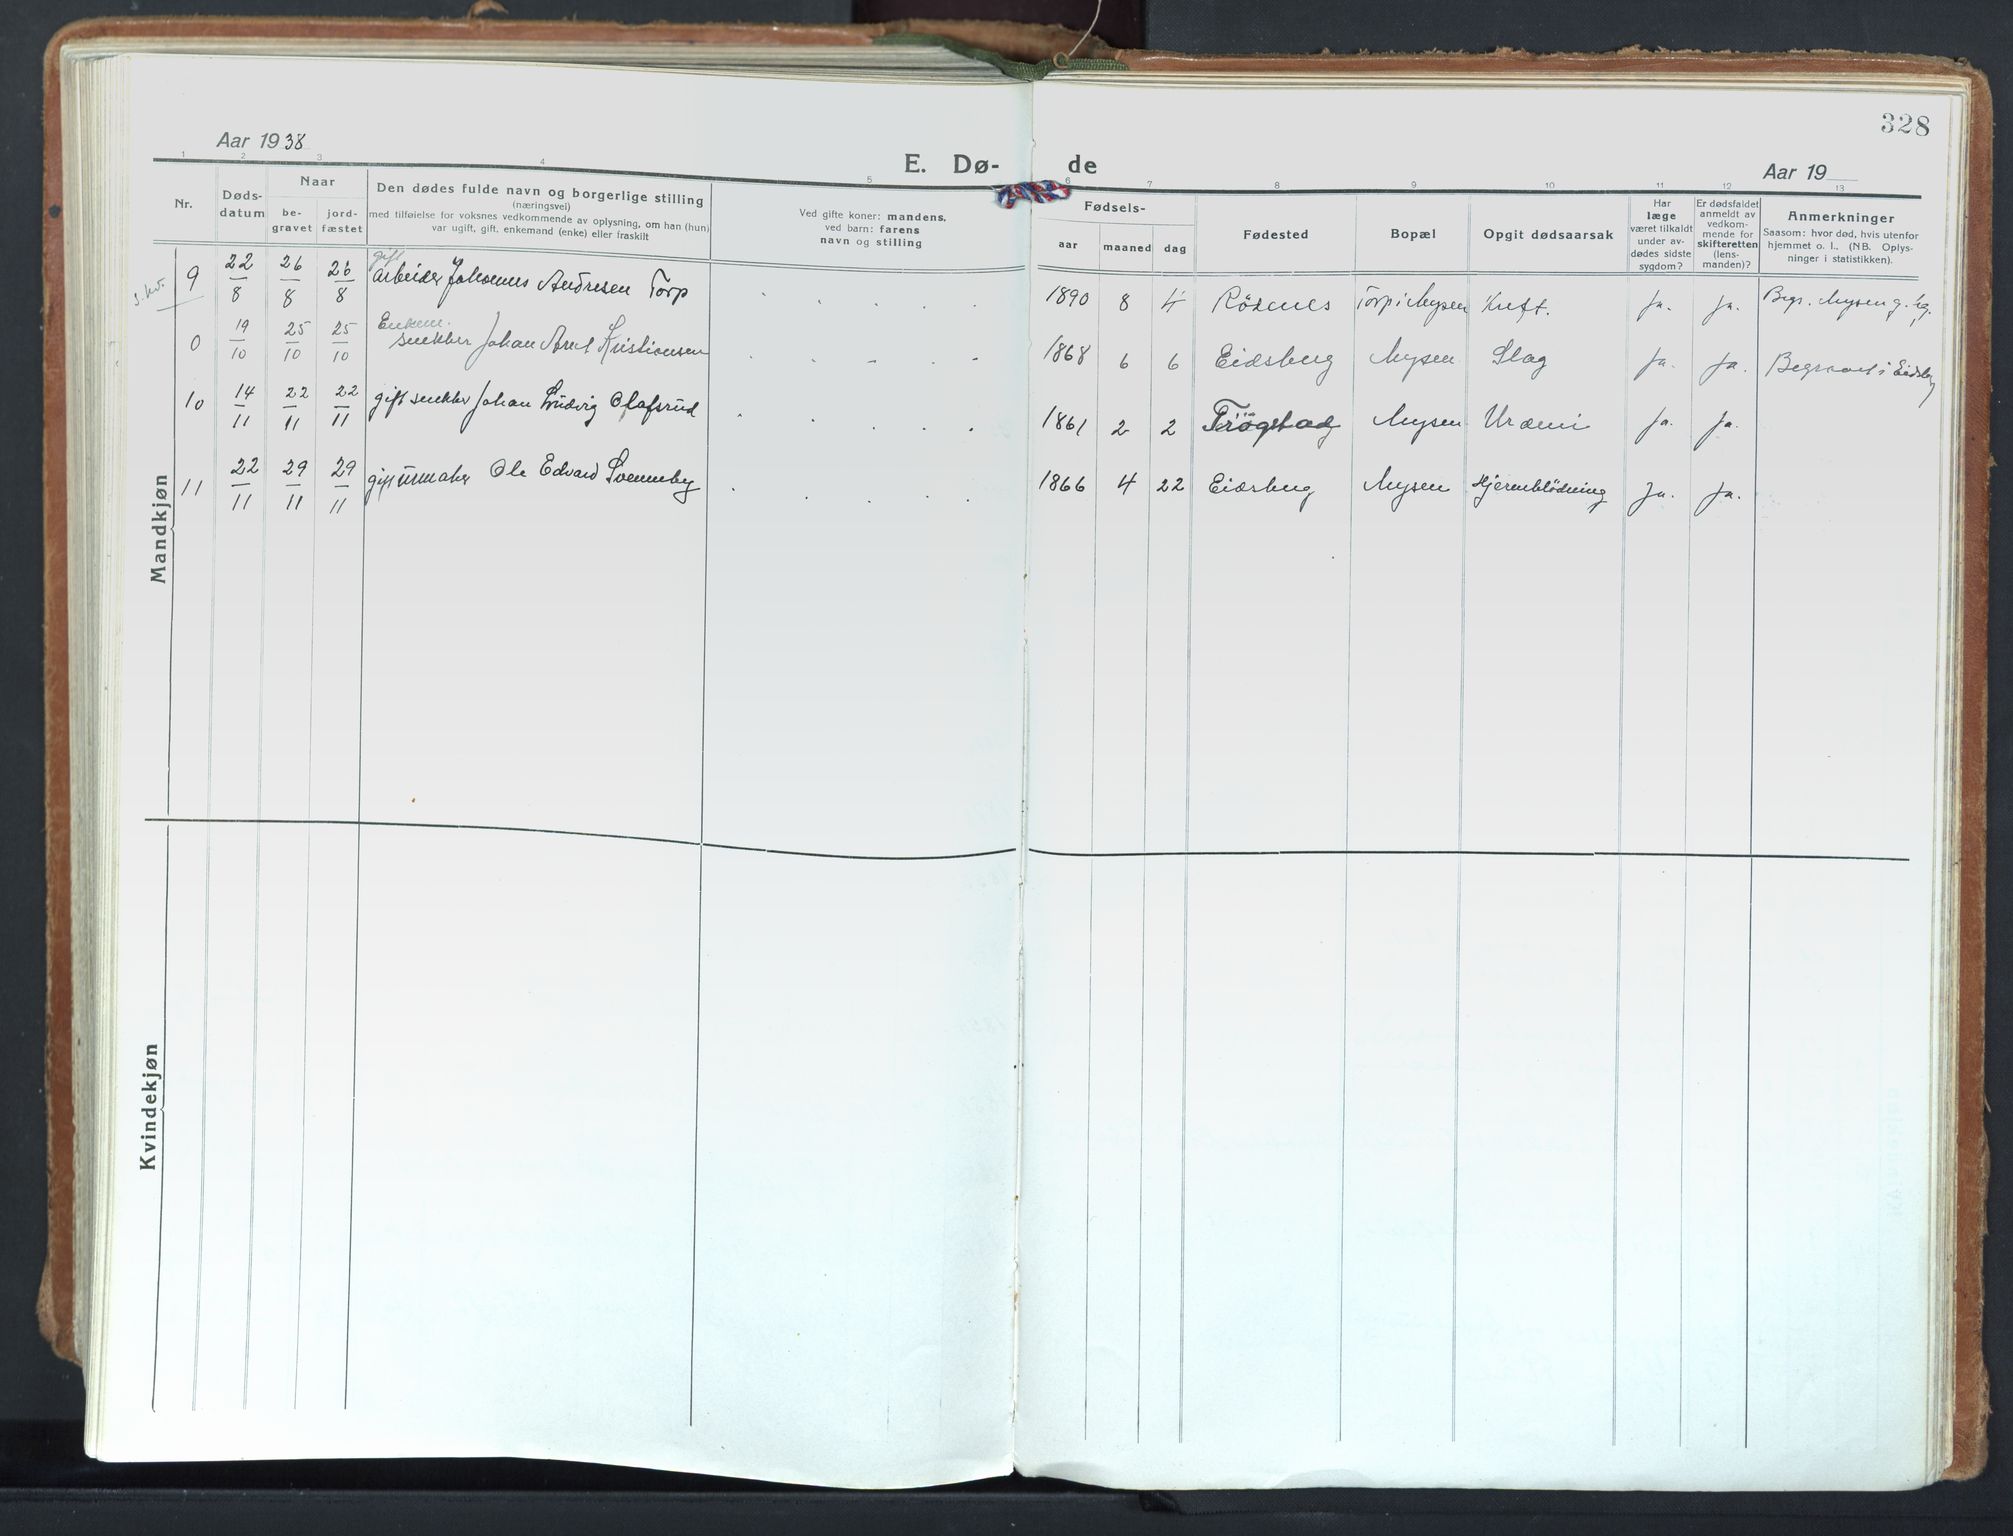 328
Aar 1938
E. Dø- de
Aar 19
1 2 3 4 5 6 7 8 9 10 11 12 13
Nr.
Døds-
datum
Naar
be-
gravet
jord-
fæstet
Den dødes fulde navn og borgerlige stilling
(næringsvei)
med tilføielse for voksnes vedkommende av oplysning, om han (hun)
var ugift, gift, enkemand (enke) eller fraskilt
Ved gifte koner: mandens,
ved barn: farens
navn og stilling
Fødsels-
aar maaned dag
Fødested
Bopæl
Opgit dødsaarsak
Har
læge
været tilkaldt
under av-
dødes sidste
sygdom?
Er dødsfaldet
anmeldt av
vedkom-
mende for
skifteretten
(lens-
manden)?
Anmerkninger
Saasom: hvor død, hvis utenfor
hjemmet o. l., (NB. Oplys-
ninger i statistikken).
Mandkjøn
gift
9 22/8 26/8 26/8 arbeider Johannes Andresen Torp 1890 8 4 Rødenes Torp i Mysen Kreft. Ja. Ja. Begr. Mysen g. kg.
Enkem.
0 19/10 25/10 25/10 snekker Johan Arnt Kristiansen 1868 6 6 Eidsberg Mysen Slag Ja. Ja. Begravet i Eidsberg
10 14/11 22/11 22/11 gift snekker Johan Ludvig Olafsrud 1861 2 2 Trøgstad Mysen Uræmi Ja. Ja.
11 22/11 29/11 29/11 gift urmaker Ole Edvard Svenneby 1866 4 22 Eidsberg Mysen Hjerneblödning Ja. Ja.
Kvindekjøn